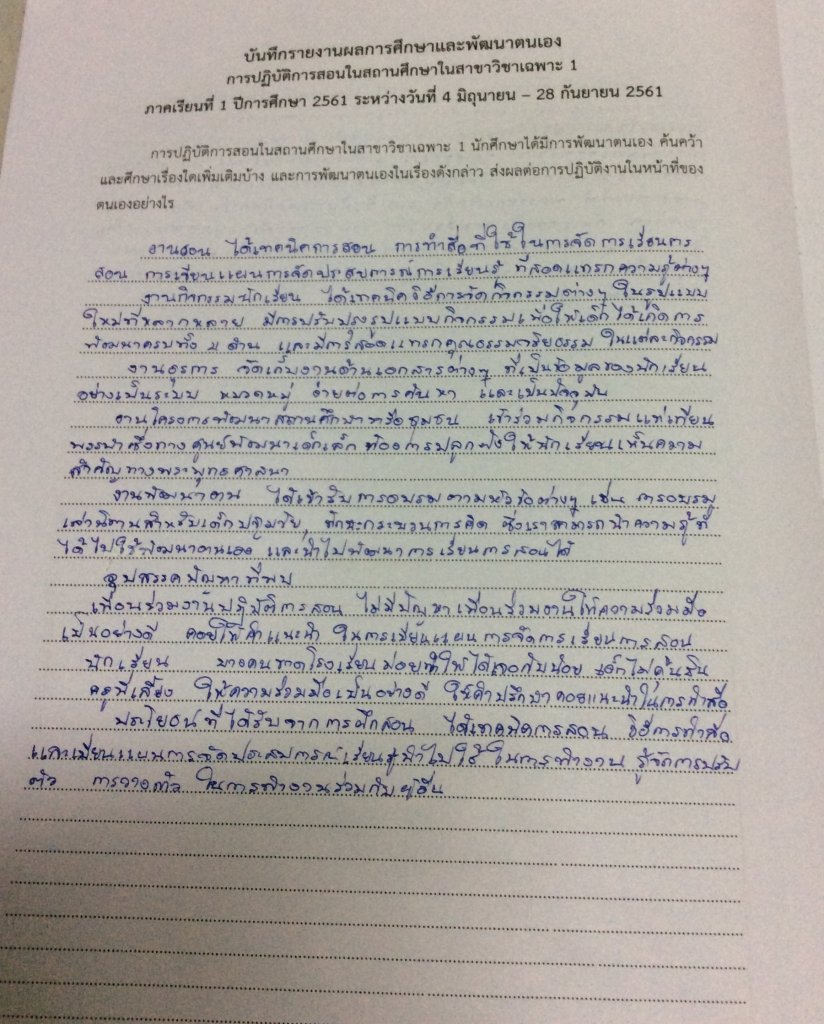 บันทึกรายงานผลการศึกษาและพัฒนาตนเอง
การปฏิบัติการสอนในสถานศึกษาในสาขาวิชาเฉพาะ 1
ภาคเรียนที่ 1 ปีการศึกษา 2561 ระหว่างวันที่ 4 มิถุนายน – 28 กันยายน 2561
การปฏิบัติการสอนในสถานศึกษาในสาขาวิชาเฉพาะ 1 นักศึกษาได้มีการพัฒนาตนเอง ค้นคว้า
และศึกษาเรื่องใดเพิ่มเติมบ้าง และการพัฒนาตนเองในเรื่องดังกล่าว ส่งผลต่อการปฏิบัติงานในหน้าที่ของ
ตนเองอย่างไร
งานสอน ได้เทคนิคการสอน การทำสื่อที่ใช้ในการจัดการเรียนการ
สอน การเขียนแผนการจัดประสบการณ์การเรียนรู้ ที่สอดแทรกความรู้ต่างๆ
งานกิจกรรมนักเรียน ได้เทคนิควิธีการจัดกิจกรรมต่างๆ ในรูปแบบ
ใหม่ที่หลากหลาย มีการปรับปรุงรูปแบบกิจกรรมเพื่อให้เด็กได้เกิดการ
พัฒนาครบทั้ง 4 ด้าน และมีการสอดแทรกคุณธรรมจริยธรรม ในแต่ละกิจกรรม
งานธุรการ จัดเก็บงานด้านเอกสารต่างๆ ที่เป็นข้อมูลของนักเรียน
อย่างเป็นระบบ หมวดหมู่ ง่ายต่อการค้นหา และเป็นปัจจุบัน
งานโครงการพัฒนาสถานศึกษาหรือชุมชน เข้าร่วมกิจกรรมแห่เทียน
พรรษาซึ่งทางศูนย์พัฒนาเด็กเล็ก ต้องการปลูกฝังให้นักเรียนเห็นความ
สำคัญทางพระพุทธศาสนา
งานพัฒนาตน ได้เข้ารับการอบรมตามหัวข้อต่างๆ เช่น การอบรม
เล่านิทานสำหรับเด็กปฐมวัย, ทักษะกระบวนการคิด ซึ่งเราสามารถนำความรู้ที่
ได้ไปใช้พัฒนาตนเอง และนำไปพัฒนาการเรียนการสอนได้
อุปสรรคปัญหาที่พบ
เพื่อนร่วมงานปฏิบัติการสอน ไม่มีปัญหาเพื่อนร่วมงานให้ความร่วมมือ
เป็นอย่างดี คอยให้คำแนะนำ ในการเขียนแผนการจัดการเรียนการสอน
นักเรียน บางคนขาดโรงเรียนบ่อยทำให้ได้เจอกันน้อย เด็กไม่คุ้นชิน
ครูพี่เลี้ยง ให้ความร่วมมือเป็นอย่างดี ให้คำปรึกษาคอยแนะนำในการทำสื่อ
ประโยชน์ที่ได้รับจากการฝึกสอน ได้เทคนิคการสอน วิธีการทำสื่อ
และเขียนแผนการจัดประสบการณ์เรียนรู้นำไปใช้ในการทำงาน รู้จักการปรับ
ตัว การวางตัว ในการทำงานร่วมกับผู้อื่น